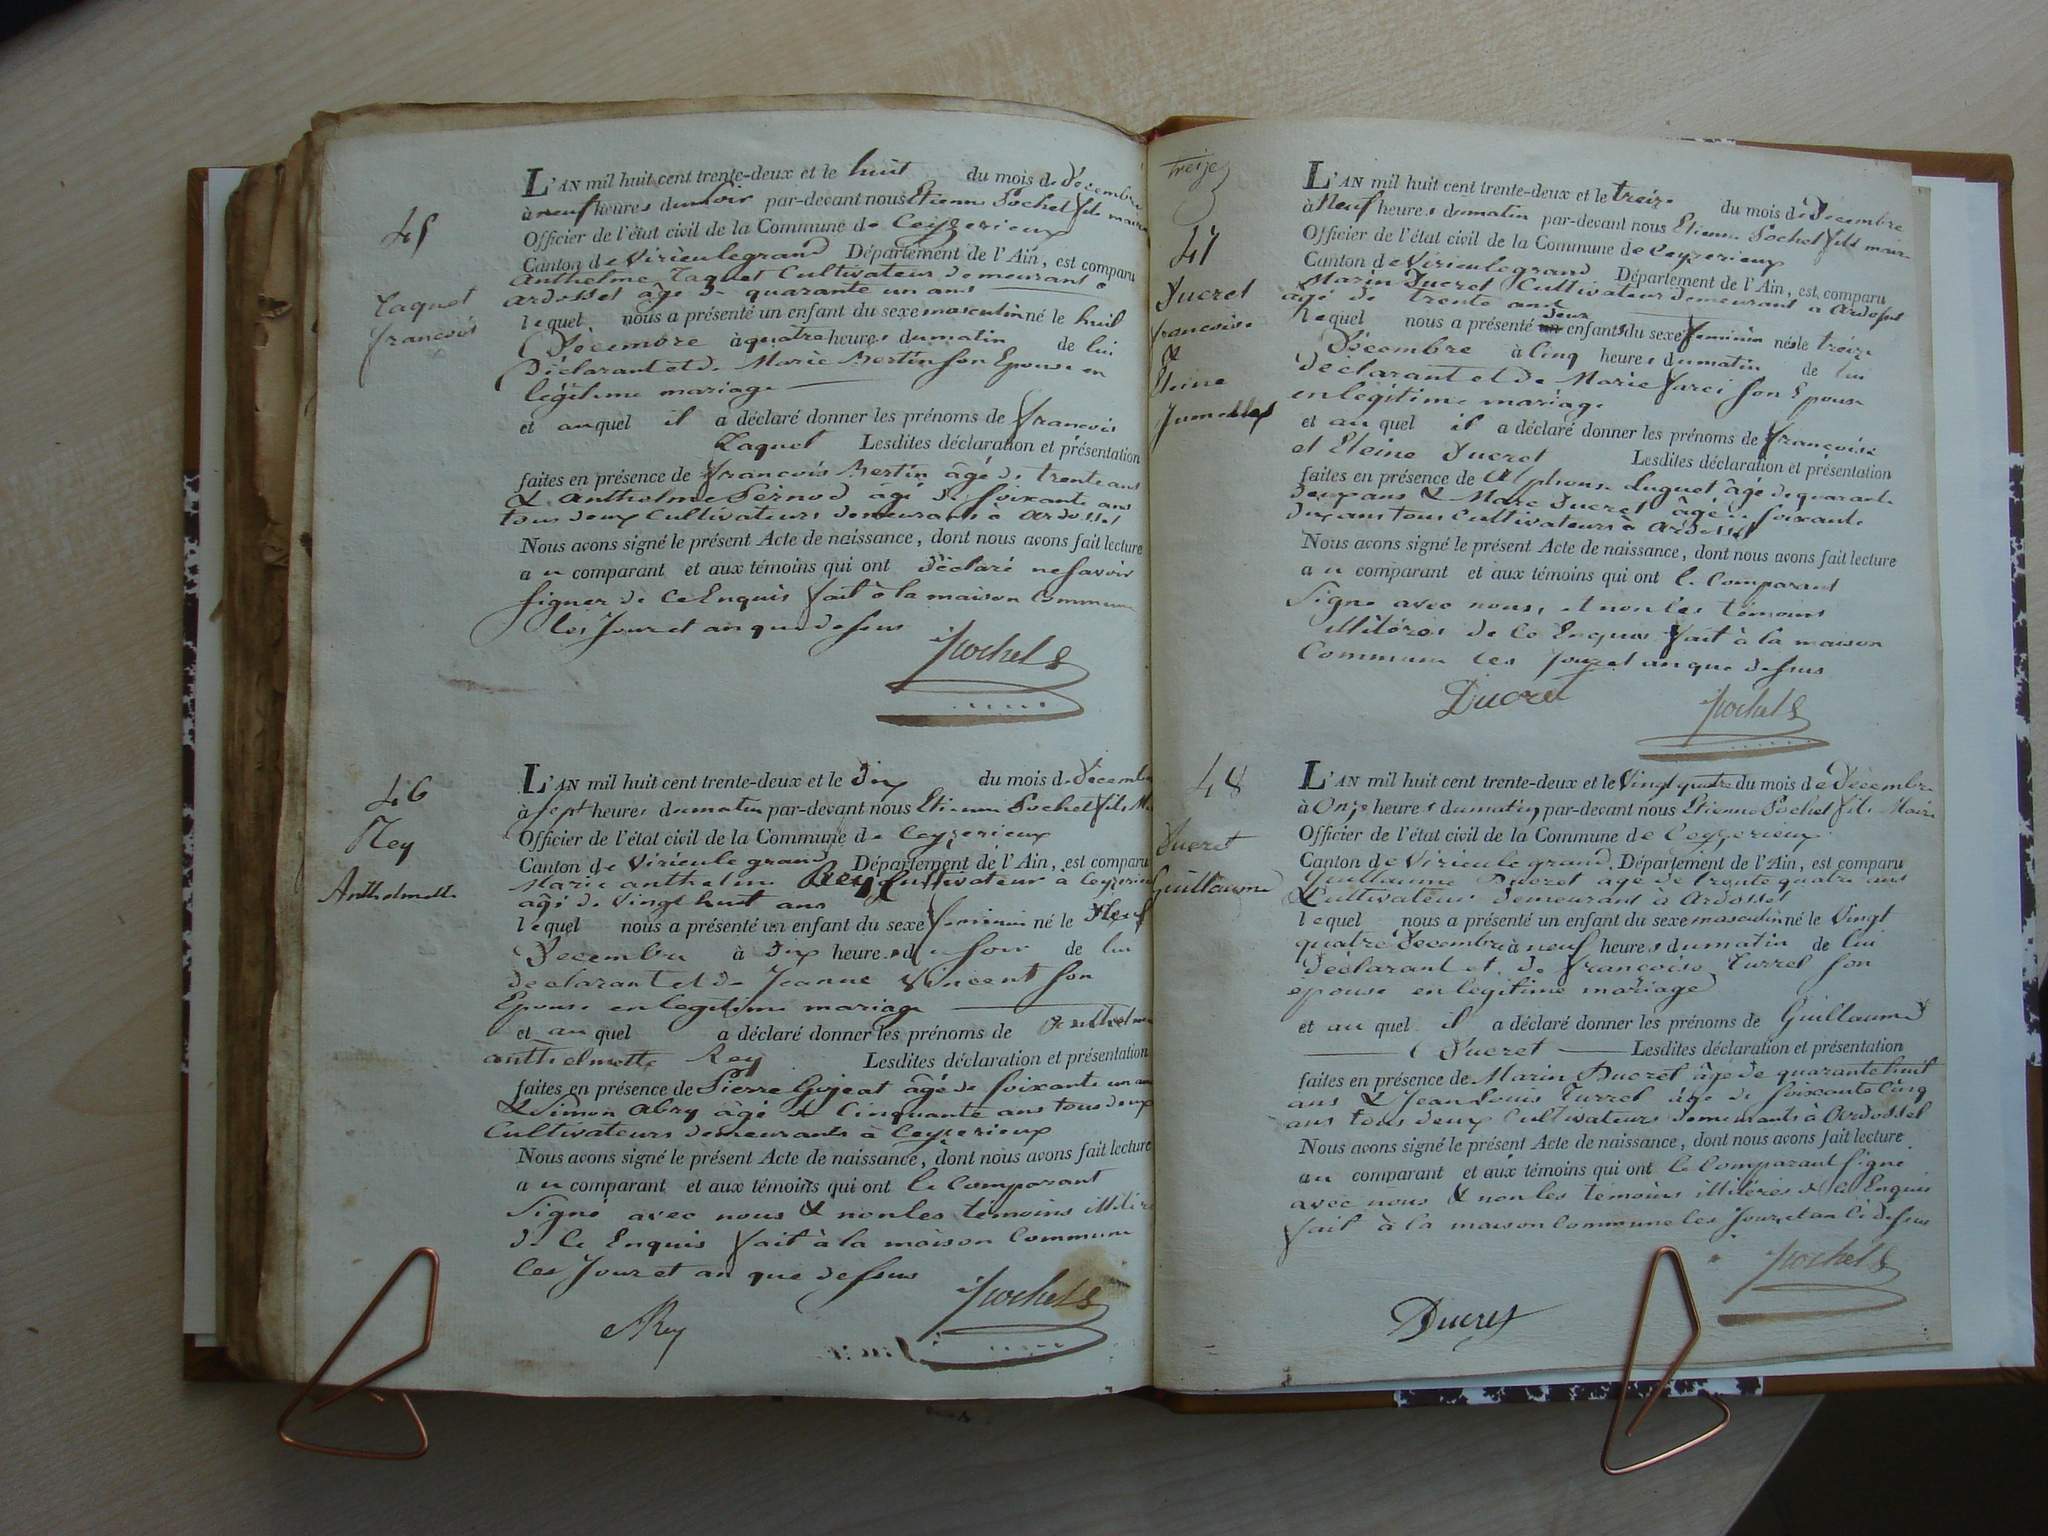 L'AN mil huit cent trente-deux et le huit du mois de Decembre
à neuf heures du soir par-devant nous Etienne Pochet fils maire
Officier de l'état civil de la Commune de Ceyzerieux
Canton de Virieulegrand Département de l'Ain, est comparu
45
Anthelme Taquet Cultivateur demeurant a
ardosset âgé de quarante un ans
Taquet
françois
lequel nous a présenté un enfant du sexe masculin né le huit
Decembre à quatre heures du matin de lui
Déclarant et de Marie Mertin son Epouse en
légitime mariage
et au quel il a déclaré donner les prénoms de françois
Taquet Lesdites déclaration et présentation
faites en présence de françois Mertin âgé de trente ans
& Anthelme Pernod âgé de soixante ans
tous deux Cultivateurs demeurants à ardosset
Nous avons signé le présent Acte de naissance, dont nous avons fait lecture
au comparant et aux témoins qui ont déclaré ne savoir
signer de ce Enquis fait à la maison Commune
les Jour et an que dessus
Pochet
46
Rey
Anthelmette
L'AN mil huit cent trente-deux et le dix du mois de Decembre
à sept heures du matin par-devant nous Etienne Pochet fils M
Officier de l'état civil de la Commune de Ceyzerieux
Canton de Virieulegrand Département de l'Ain, est comparu
Marie anthelme Rey Cultivateur à Ceyzerieux
âgé de Vingt huit ans
lequel nous a présenté un enfant du sexe feminin né le Neuf
Decembre à Dix heures du soir de lui
declarant et de Jeanne Vincent son
Epouse en legitime mariage
et au quel a déclaré donner les prénoms de
anthelmette Rey Lesdites déclaration et présentation
faites en présence de Pierre Gojeat âgé de soixante un ans
& Simon Abry âgé de Cinquante ans tous deux
Cultivateurs demeurants à Ceyzerieux
Nous avons signé le présent Acte de naissance, dont nous avons fait lecture
au comparant et aux témoins qui ont le Comparant
Signé avec nous & non les témoins illiteré
de Ce Enquis fait à la maison Commune
les Jour et an que dessus
Rey
Pochet
treize
47
Ducret
francoise
&
Eleine
Jumelles
L'AN mil huit cent trente-deux et le treize du mois de Decembre
à Neuf heures du matin par-devant nous Etienne Pochet fils maire
Officier de l'état civil de la Commune de Ceyzerieux
Canton de Virieulegrand Département de l'Ain, est comparu
Marin Ducret Cultivateur demeurant a Ardosset
âgé de trente ans
lequel nous a présenté un deux enfants du sexe feminin nés le treize
Décembre à Cinq heures du matin de lui
declarant et de Marie Jarci son Epouse
en légitime mariage
et au quel il a déclaré donner les prénoms de françoise
et Eleine Ducret Lesdites déclaration et présentation
faites en présence de Alphonse Luguet âgé de quarante
deux ans & Marc Ducret âgé de soixante
dix ans tous Cultivateurs à Ardosset
Nous avons signé le présent Acte de naissance, dont nous avons fait lecture
au comparant et aux témoins qui ont le Comparant
Signé avec nous, et non les témoins
illitérés de Ce Enquis fait à la maison
Commune les Jour et an que dessus
Ducret
Pochet
48
Ducret
Guillaume
L'AN mil huit cent trente-deux et le Vingt quatre du mois de Decembre
à Onze heures du matin par-devant nous Etienne Pochet fils Maire
Officier de l'état civil de la Commune de Ceyzerieux
Canton de Virieulegrand Département de l'Ain, est comparu
Guillaume Ducret age de trente quatre ans
Cultivateur demeurant à Ardosset
lequel nous a présenté un enfant du sexe masculin né le Vingt
quatre Decembre à neuf heures du matin de lui
Déclarant et de françoise Turrel son
épouse en légitime mariage
et au quel il a déclaré donner les prénoms de Guillaume
Ducret Lesdites déclaration et présentation
faites en présence de Marin Ducret âge de quarante huit
ans & Jean Louis Turrel âgé de soixante Cinq
ans tous deux Cultivateurs demeurants à Ardosset
Nous avons signé le présent Acte de naissance, dont nous avons fait lecture
au comparant et aux témoins qui ont le Comparant signé
avec nous & non les témoins illitérés de ce Enquis
fait à la maison Commune les Jour et an ci dessus
Pochet
Ducret